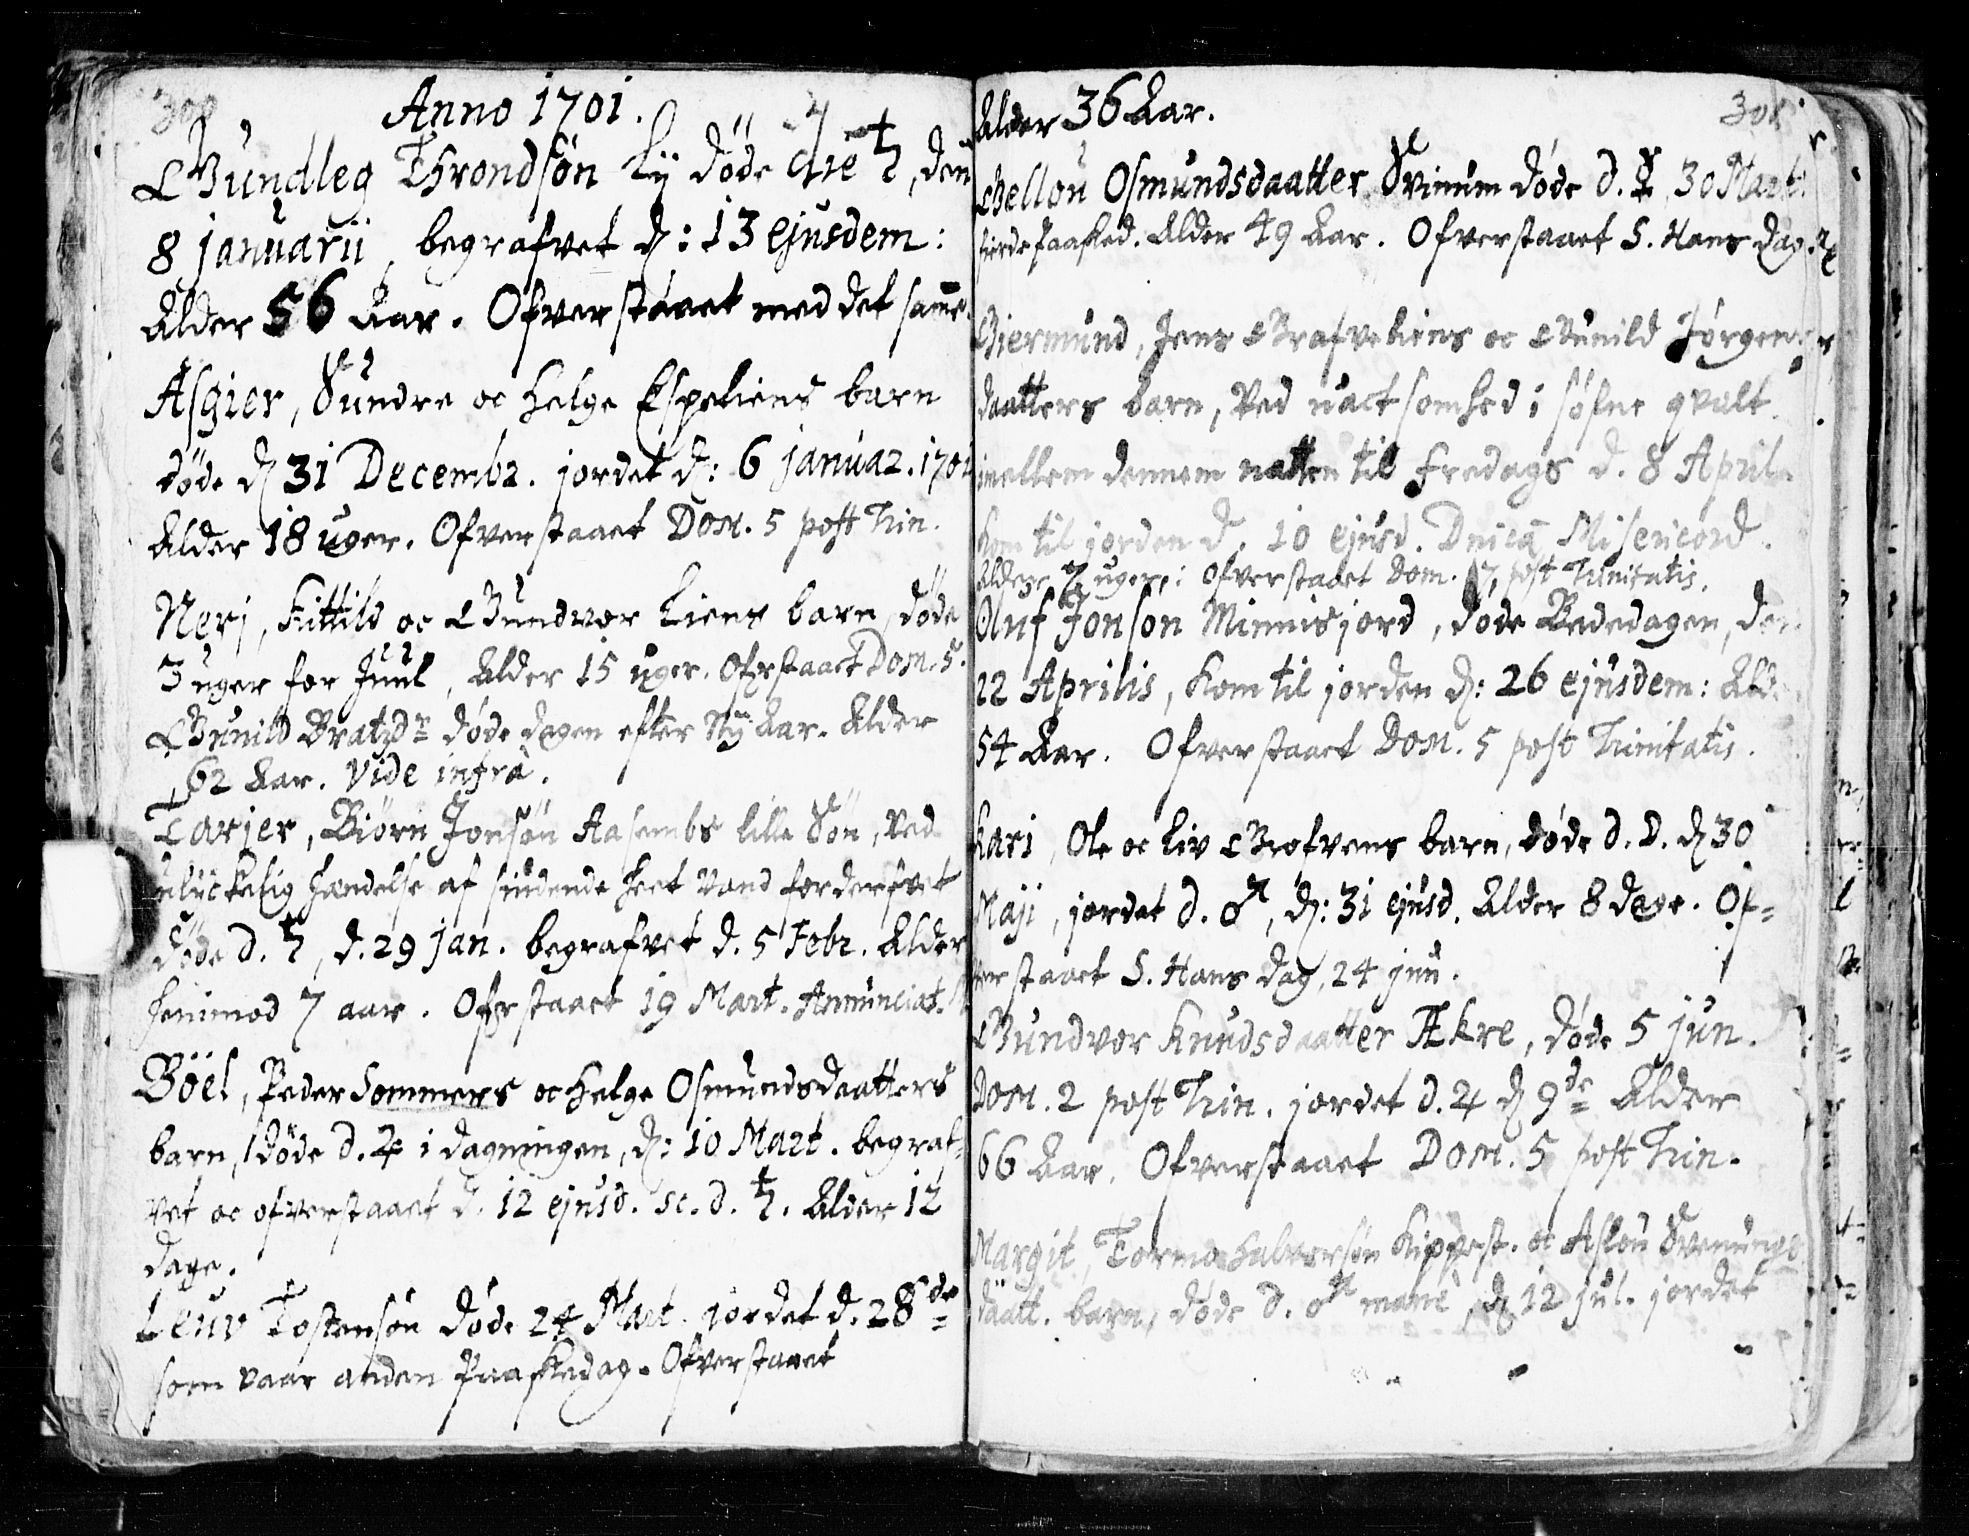 300
Anno 1701.
Gundleg Throndsøn Lij døde die ♄, den
8 januarii, begrafvet d: 13 ejusdem:
Alder 56 Aar. Ofverstaaet med det samme.
Asgier, Sundre oc Helge Espeliens barn
døde d 31 Decembr. jordet d: 6 januar. 1701
Alder 18 uger. Ofverstaaet Dom. 5 post Trin.
Neri, Kittild oc Gundvor Liens barn, døde
3 uger for Juul, Alder 15 uger. Ofrstaaet Dom. 5.
Gunild Bratzdr døde dagen efter Ny Aar. Alder
62 Aar. Vide infra.
Tarjer, Biørn Jonsøn Aasembs lille Søn, ved
ulyckelig hændelse af siudende heet vand forderfvet
døde d. ♄, d. 29 jan. begrafvet d. 5 Febr. Alder
henimod 7 aar. Ofrstaaet 19 Mart. Annunciat.
Böel, Peder Sommers oc Helge Osmundsdaatters
barn, døde d. ♃ i dagningen, d: 10 Mart. begraf-
vet oc ofverstaaet d. 12 ejusd. sc. d. ♄. Alder 12
dage.
Leuv Tostensøn døde 24 Mart. jordet d. 28de
som vaar anden Paaskedag. Ofverstaaet
Alder 36 Aar.
Osmundsdaatter Svinum døde d. ☿ 30 Martii
fierde Paasked. Alder 49 Aar. Ofverstaaet S. Hans dag.
Giermund, Jens Grafveliens oc Gunild Jørgens
daatters barn, ved uactsomhed i søfne qvalt
imellem dennem natten til Fredags d. 8 April.
Kom til jorden d. 10 ejusd. Dnica Misericord.
Alder 7 uger: ofverstaaet Dom. 7 post Trinitatis.
Oluf Jonson Minnisjord, døde Bededagen, den
22 Aprilis, kom til jorden d: 26 ejusdem: Alder
54 Aar. Ofverstaaet Dom. 5 post Trinitatis.
Kari, Ole oc Liv Grofvens barn, døde d. D. d 30
Maji, jordet d. ♂, d: 31 ejusd. Alder 8 dage. Of=
verstaaet S. Hans dag, 24 jun.
Gundvor Knudsdaatter Ækre, døde 5 jun.
Dom. 2 post Trin. jordet d. ♃ d 9de Alder
66 Aar. Ofverstaaet Dom. 5 post Trin.
Margit, Tormo Halvorsøn Kippest. oc Aslou Svenungs
daatt. barn, døde d. ♂ mane, d 12 jul. jordet